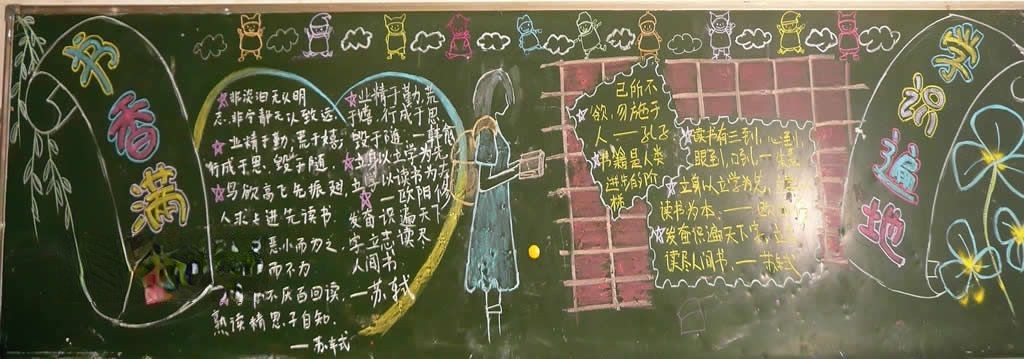 书香满
学识遍地
非淡泊无以明
志,非宁静无以致远
业精于勤,荒于嬉;
行成于思,毁于随
鸟欲高飞先振翅,
人求上进先读书.
恶小而为之,
而不为
不厌百回读,
熟读精思子自知.
——苏轼
业精于勤,荒
于嬉,行成于思
毁于随.—韩愈
立身以立学为先
立 以读书为
—欧阳修
发奋识遍天下
字,立志读尽
人间书
—苏轼
己所不
欲,勿施于
人——孔子
书籍是人类
进步的阶
梯
读书有三到,心到,
眼到,口到,—朱熹
立身以立学为先,
读书为本.——
发奋识遍天下字,立
读尽人间书.——苏轼